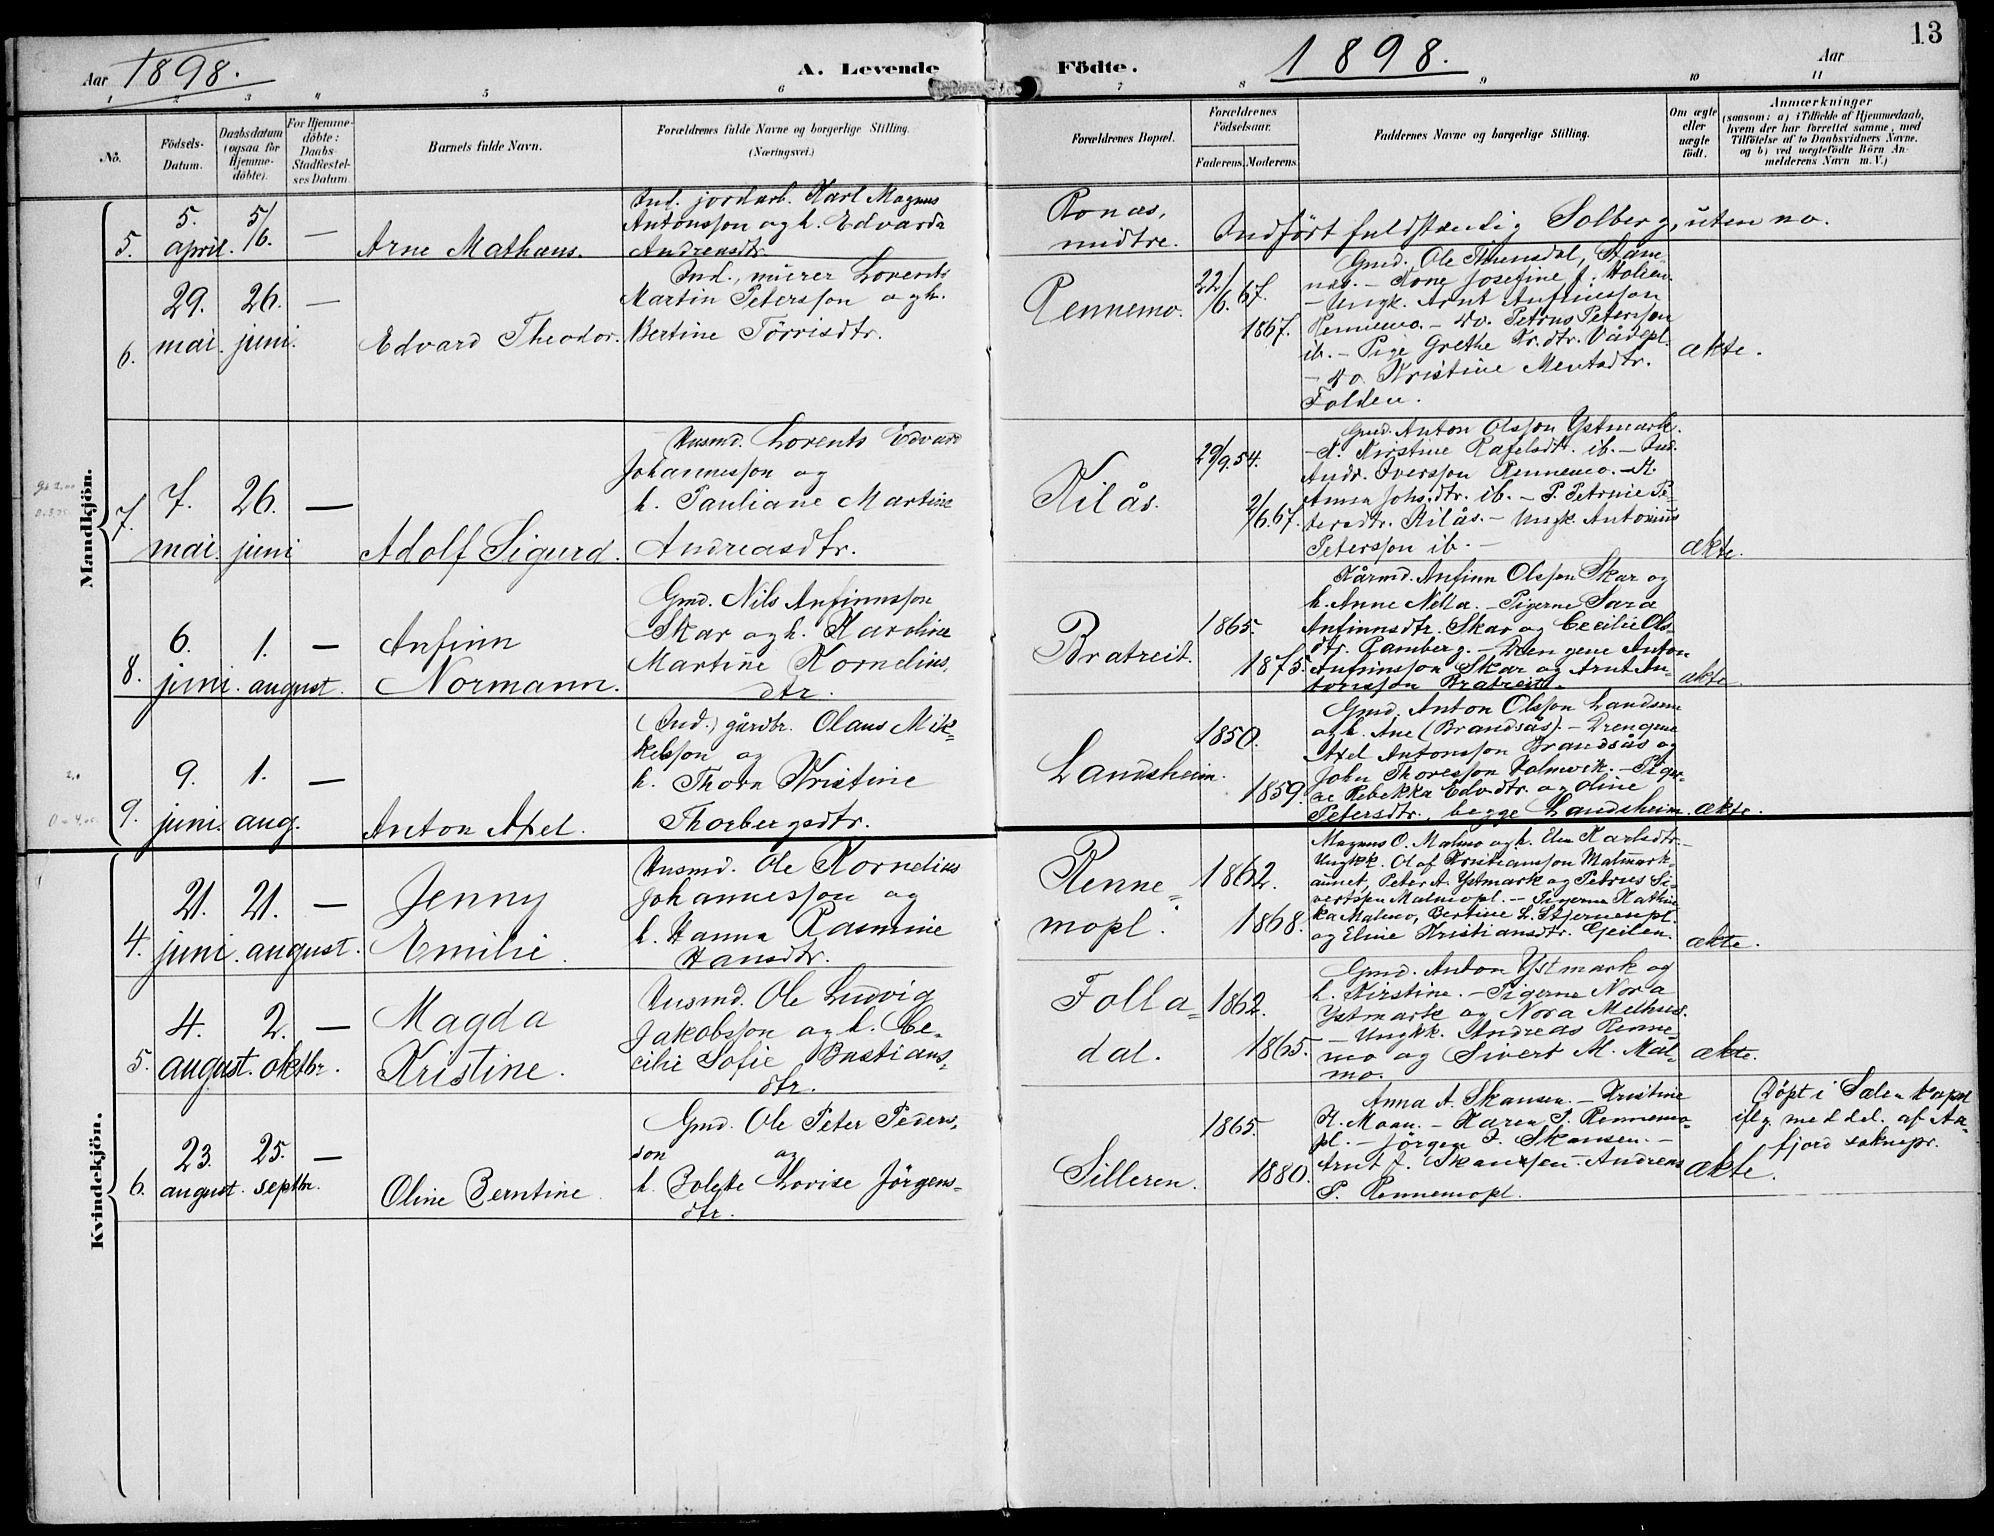 13
Aar 1898.
A. Levende
Födte.
1898.
Aar
1 2 3 4 5 6 7 8 9 10 11
No.
Födsels-
Datum.
Daabsdatum
(ogsaa for
Hjemme-
döbte).
For Hjemme-
döbte:
Daabs-
Stadfestel-
ses Datum
Barnets fulde Navn.
Forældrenes fulde Navne og borgerlige Stilling.
(Næringsvei.)
Forældrenes Bopæl.
Forældrenes
Födselsaar.
Faderens. Moderens.
Faddernes Navne og borgerlige Stilling.
Om ægte
eller
uægte
födt.
Anmærkninger
(saasom: a) i Tilfælde af Hjemmedaab,
hvem der har forrettet samme, med
Tilföielse af to Daabsvidners Navne.
og b) ved uægtefödte Börn An-
melderens Navn m. V.)
Mandkjön.
5.
5.
april.
5/6.
—
Arne Mathaus.
Ind. jordarb. Karl Magnus
Antonsson og h. Edvarda
Andreasdtr.
Ronæs,
midtre.
Indfört fuldstændig Solberg, uten no.
6.
29.
mai.
26.
juni.
—
Edvard Theodor.
Ind., mürer Lorents
Martin Petersson og h.
Bertine Törrisdtr.
Rennemo.
22/6. 67.
1867.
Gmd. Ole Thunsdal, Stam-
næs. – Kone Josefine J. Holien.
– Ungk. Arnt Anfinnsson
Rennemo. – do. Petrus Petersson
ib. – Pige Grethe Kr.dtr. Vådepl.
– do. Kristine Mentsdtr.
Folden.
ækte.
7.
7.
mai.
26.
juni
—
Adolf Sigurd.
Husmd. Lorents Edvard
Johannesson og
h. Pauliane Martine
Andreasdtr.
Kilås.
29/9. 54.
2/6. 67.
Gmd. Anton Olsson Ystmark.
– P. Kirstine Rafelsdtr. ib. – Ind.
Andr. Iversson Rennemo. – K.
Anna Johs.dtr. ib. – P. Petrnie Pe-
tersdtr. Kilås. – Ungk. Antonius
Petersson ib. –
ækte.
8.
6.
juni.
1.
august.
—
Anfinn
Normann.
Gmd. Nils Anfinnsson
Skar og h. Karoline
Martine Kornelius,
dtr.
Bratreit.
1865.
1875.
Kårmd. Anfinn Olsson Skar og
h. Anne Nilla. – Pigerne Sara
Anfinnsdtr. Skar og Cecilie Ols-
dtr. Ramberg. – Drengene Anton
Anfinnsson Skar og Arnt An-
tonsson Bratreit.
ækte.
9.
9.
juni.
1.
aug.
—
Anton Axel.
(Ind.) gårdbr. Olaus Mik-
kelsson og
h. Thora Kristine
Thorbergsdtr.
Landsheim.
1850.
1859.
Gmd. Anton Olsson Landsem
og h. Ane (Brandsås). – Drengene
Axel Antonsson Brandsås og
John Thoresson Holmvik. – Piger-
ne Rebekka Edv.dtr. og Oline
Petersdtr., begge Landsheim.
ækte.
Kvindekjön.
4.
21.
juni.
21.
august.
—
Jenny
Emilie.
Husmd. Ole Kornelius
Johannesson og
h. Hanna Rasmine
Hansdtr.
Renne-
mopl.
1862.
1868.
Magnus O. Malmo og h. Elen Karlsdtr. –
Ungkk. Olaf Kristiansson Malmark-
aunet, Peter A. Ystmark og Petrus Si-
vertsen Malmopl. – Pigerne Kathin-
ka Malmo, Bertine L. Stjernenpl.
og Eline Kristiansdtr. Geilen.
ækte.
5.
4.
august.
2.
oktbr.
—
Magda
Kristine.
Husmd. Ole Ludvig
Jakobsson og h. Ce-
cilie Sofie Bastians-
dtr.
Folla-
dal.
1862.
1865.
Gmd. Anton Ystmark og
h. Kirstine. – Pigerne Nora
Ystmark og Nora Melhus.
– Ungkk. Andreas Renne-
mo og Sivert M. Mal-
mo.
ækte.
6.
23.
august.
25.
septbr.
—
Oline Berntine.
Gmd. Ole Peter Peders-
son og
h. Bolette Lovise Jörgens-
dtr.
Silleren.
1865.
1880.
Anna A. Skansen. – Kristine
K. Moan. – Karen P. Rennemo-
pl. – Jörgen J. Skansen. –
Arnt J. Skansen. – Andreas
P. Rennemopl.
ækte.
Döpt i Sælen kapel
iflg. meddel. af Aa-
fjord soknepr.